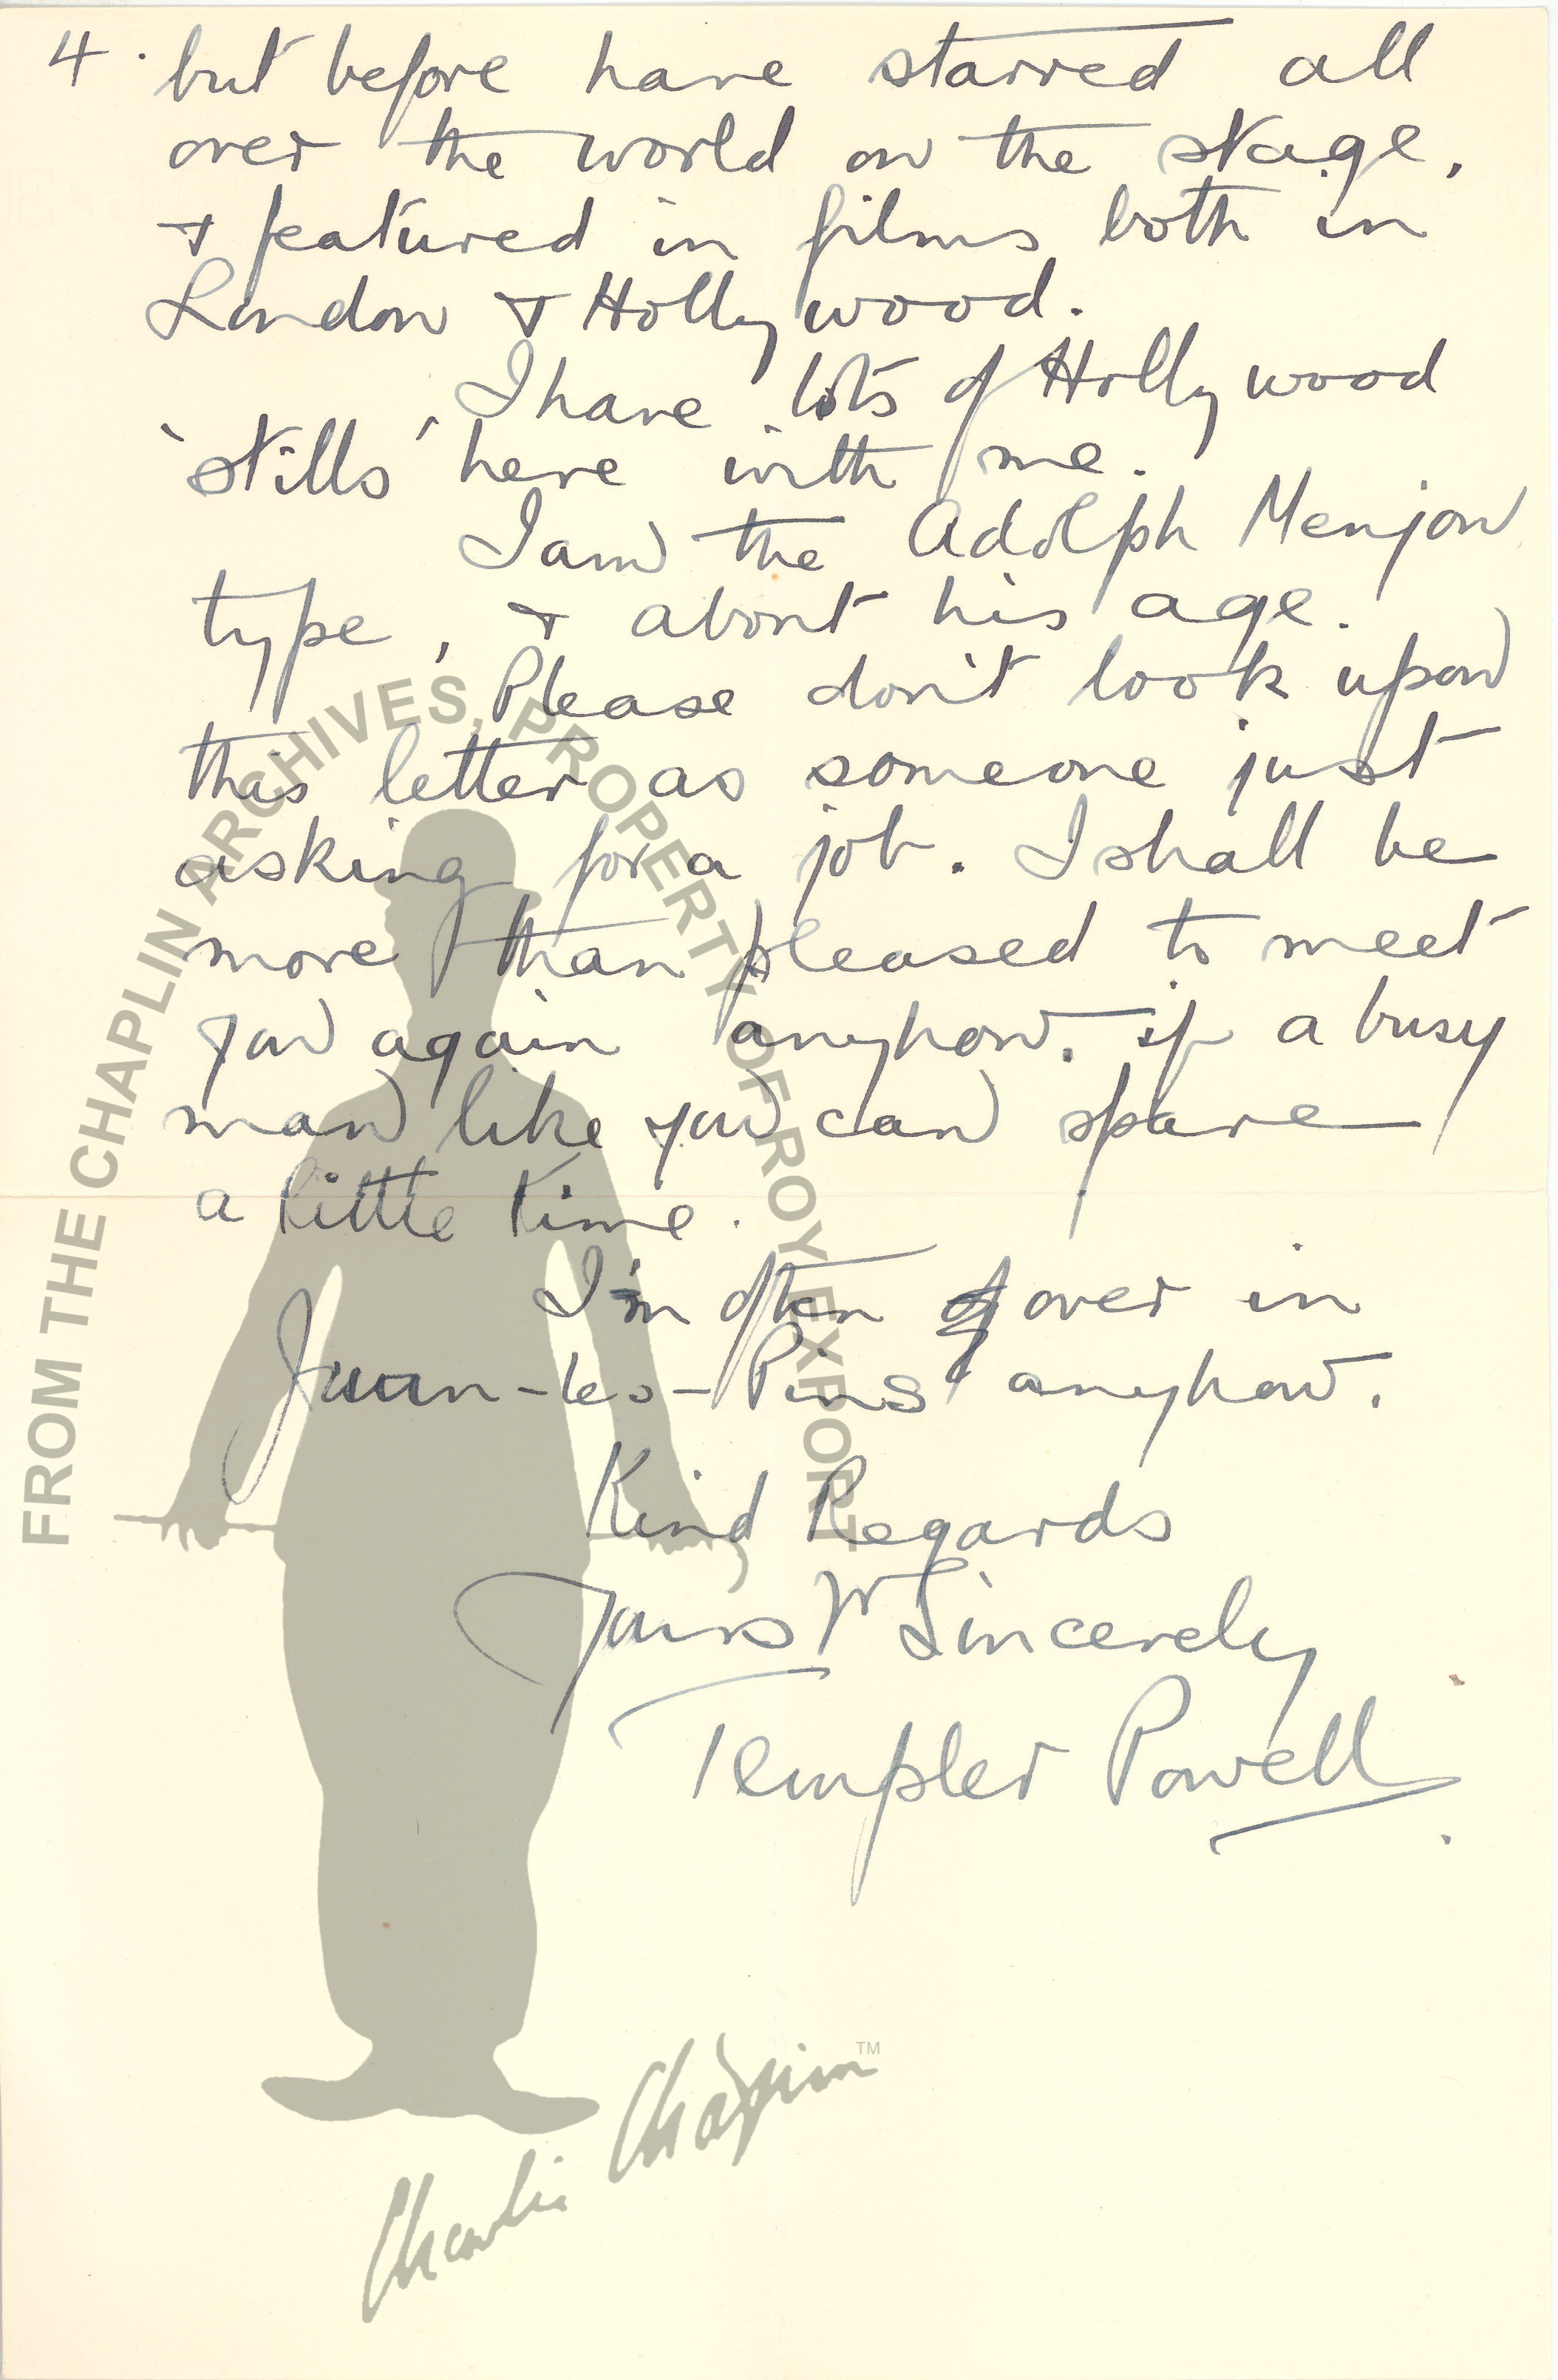 4. but before have starred all
over the world on the stage,
& featured in films both in
London & Hollywood.
I have lots of Hollywood
'stills' here with me.
I am the Adolph Menjou
type, & about his age.
Please don't look upon
this letter as someone just
asking for a job. I shall be
more than pleased to meet
you again anyhow, if a busy
man like you can spare
a little time.
I'm often over in
Juan-les-Pins anyhow.
Kind Regards
Yours Sincerely
Templer Powell
FROM THE CHAPLIN ARCHIVES, PROPERTY OF ROY EXPORT
Charlie Chaplin™